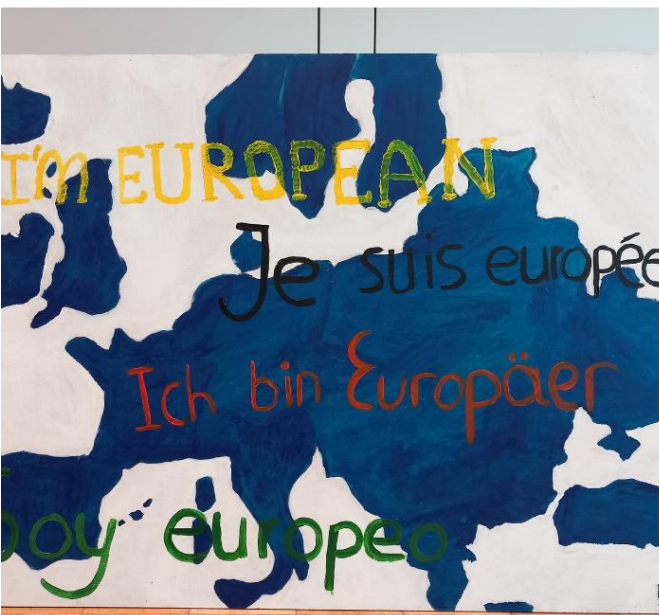 I'm EUROPEAN
Je suis europée
Ich bin Europäer
soy europeo